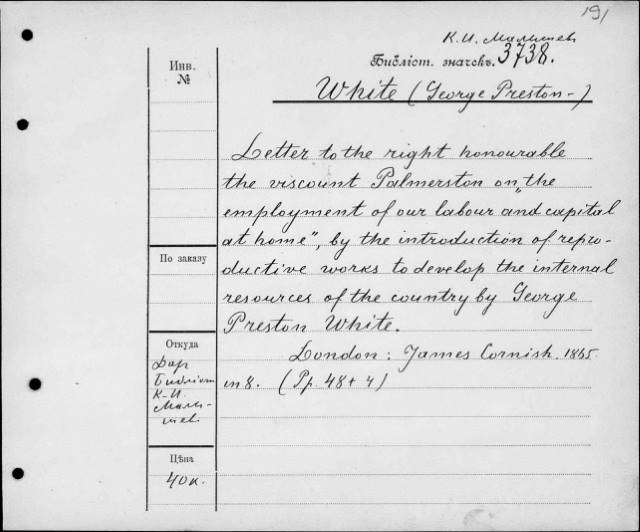 191
К. И. Малышев
Библіот. значекъ. 3738.
Инв.
№
White (George Preston-)
Letter to the right honourable
the viscount Palmerston on „the
employment of our labour and capital
at home", by the introduction of repro-
ductive works to develop the internal
resources of the country by George
Preston White.
London: James Cornish. 1865.
in 8. (Pp. 48 + 4)
По заказу
Откуда
Дар
Библіот
К-И.
Малы-
шев
Цѣна
40 к.